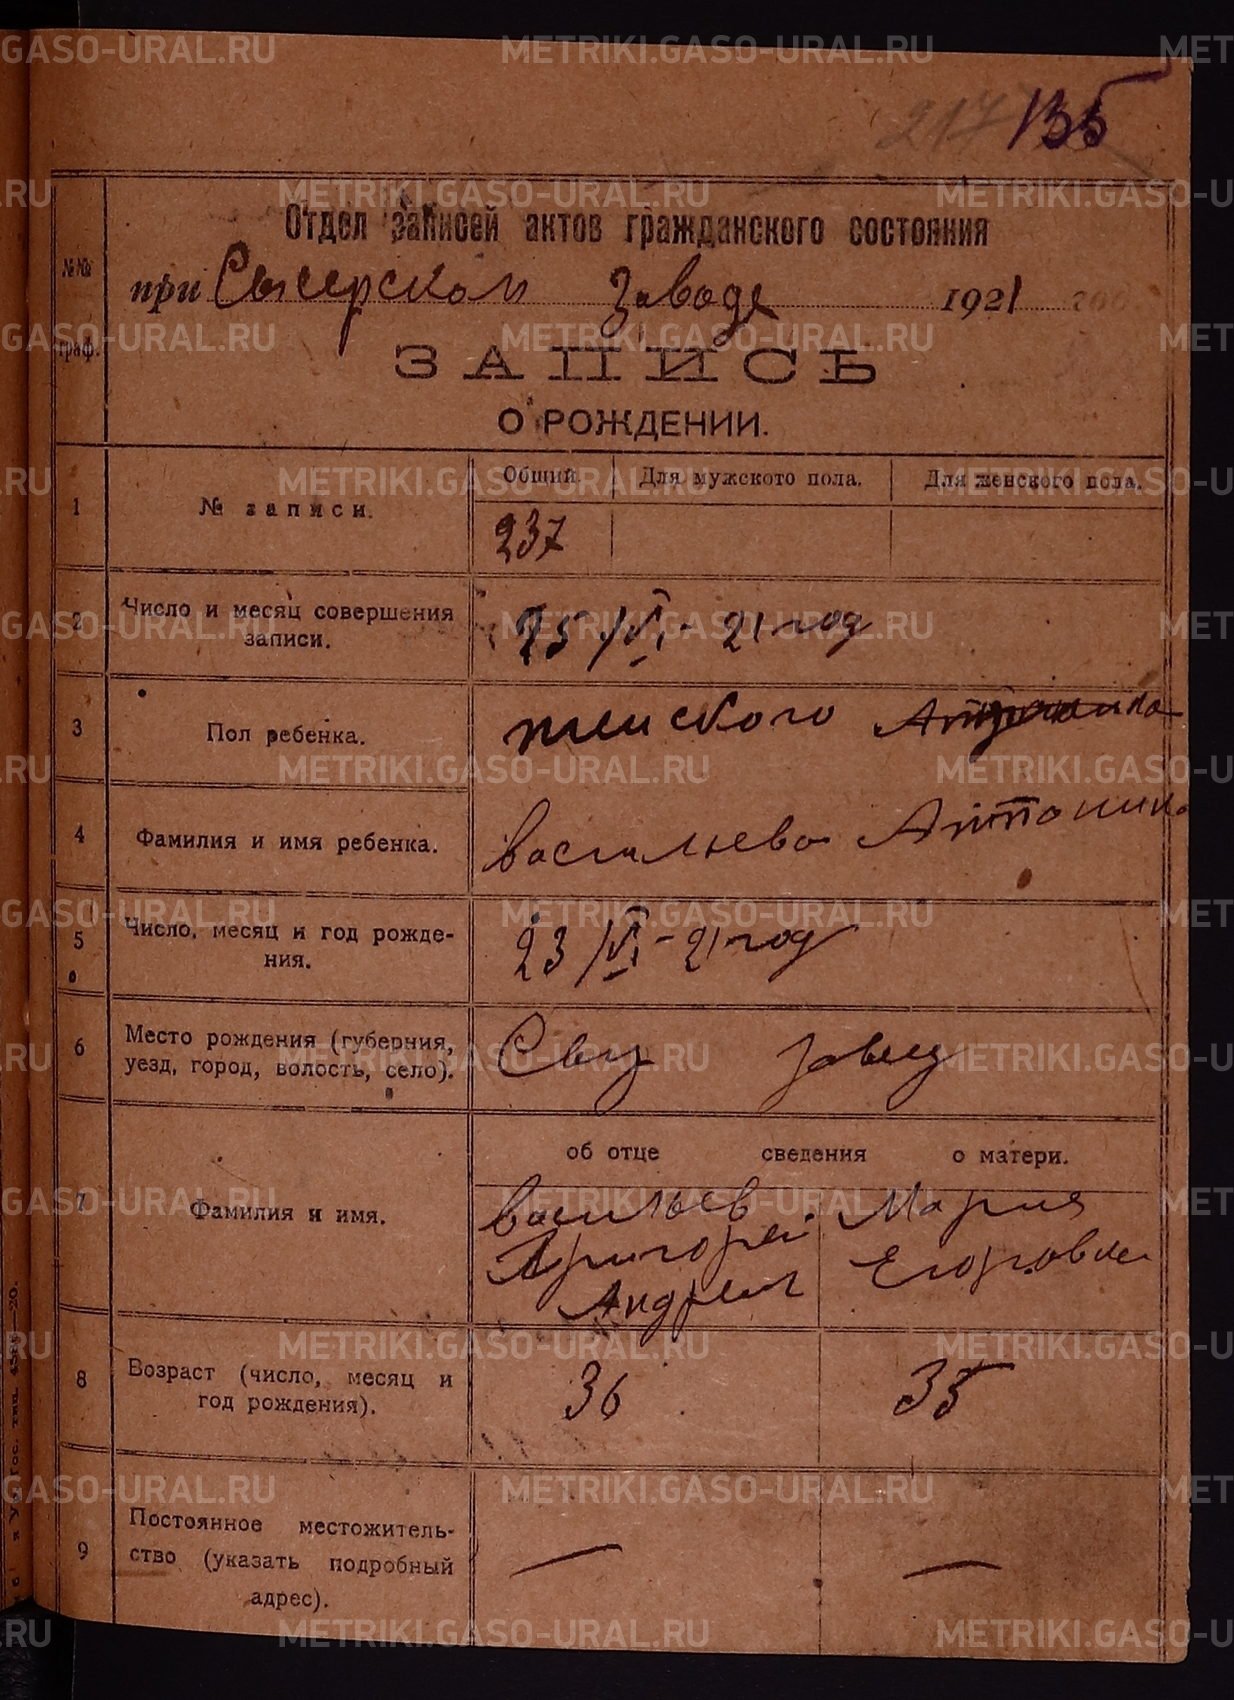 217 135
Отдел записей актов гражданского состояния
при Сысерском Заводе 1921 год
№№ граф.
ЗАПИСЬ
О РОЖДЕНИИ.
1 № записи. Общий. Для мужского пола. Для женского пола.
237
2 Число и месяц совершения
записи.
25/VI - 21 год
3 Пол ребенка. женского
4 Фамилия и имя ребенка. Васильева Антонина
5 Число, месяц и год рожде-
ния.
23/VI - 21 год
6 Место рождения (губерния,
уезд, город, волость, село).
завод
об отце сведения о матери.
7 Фамилия и имя.
Васильев Мария
Григорей Егоровна
Андреев
8 Возраст (число, месяц и
год рождения).
36 35
9 Постоянное местожитель-
ство (указать подробный
адрес).
— —
METRIKI.GASO-URAL.RU